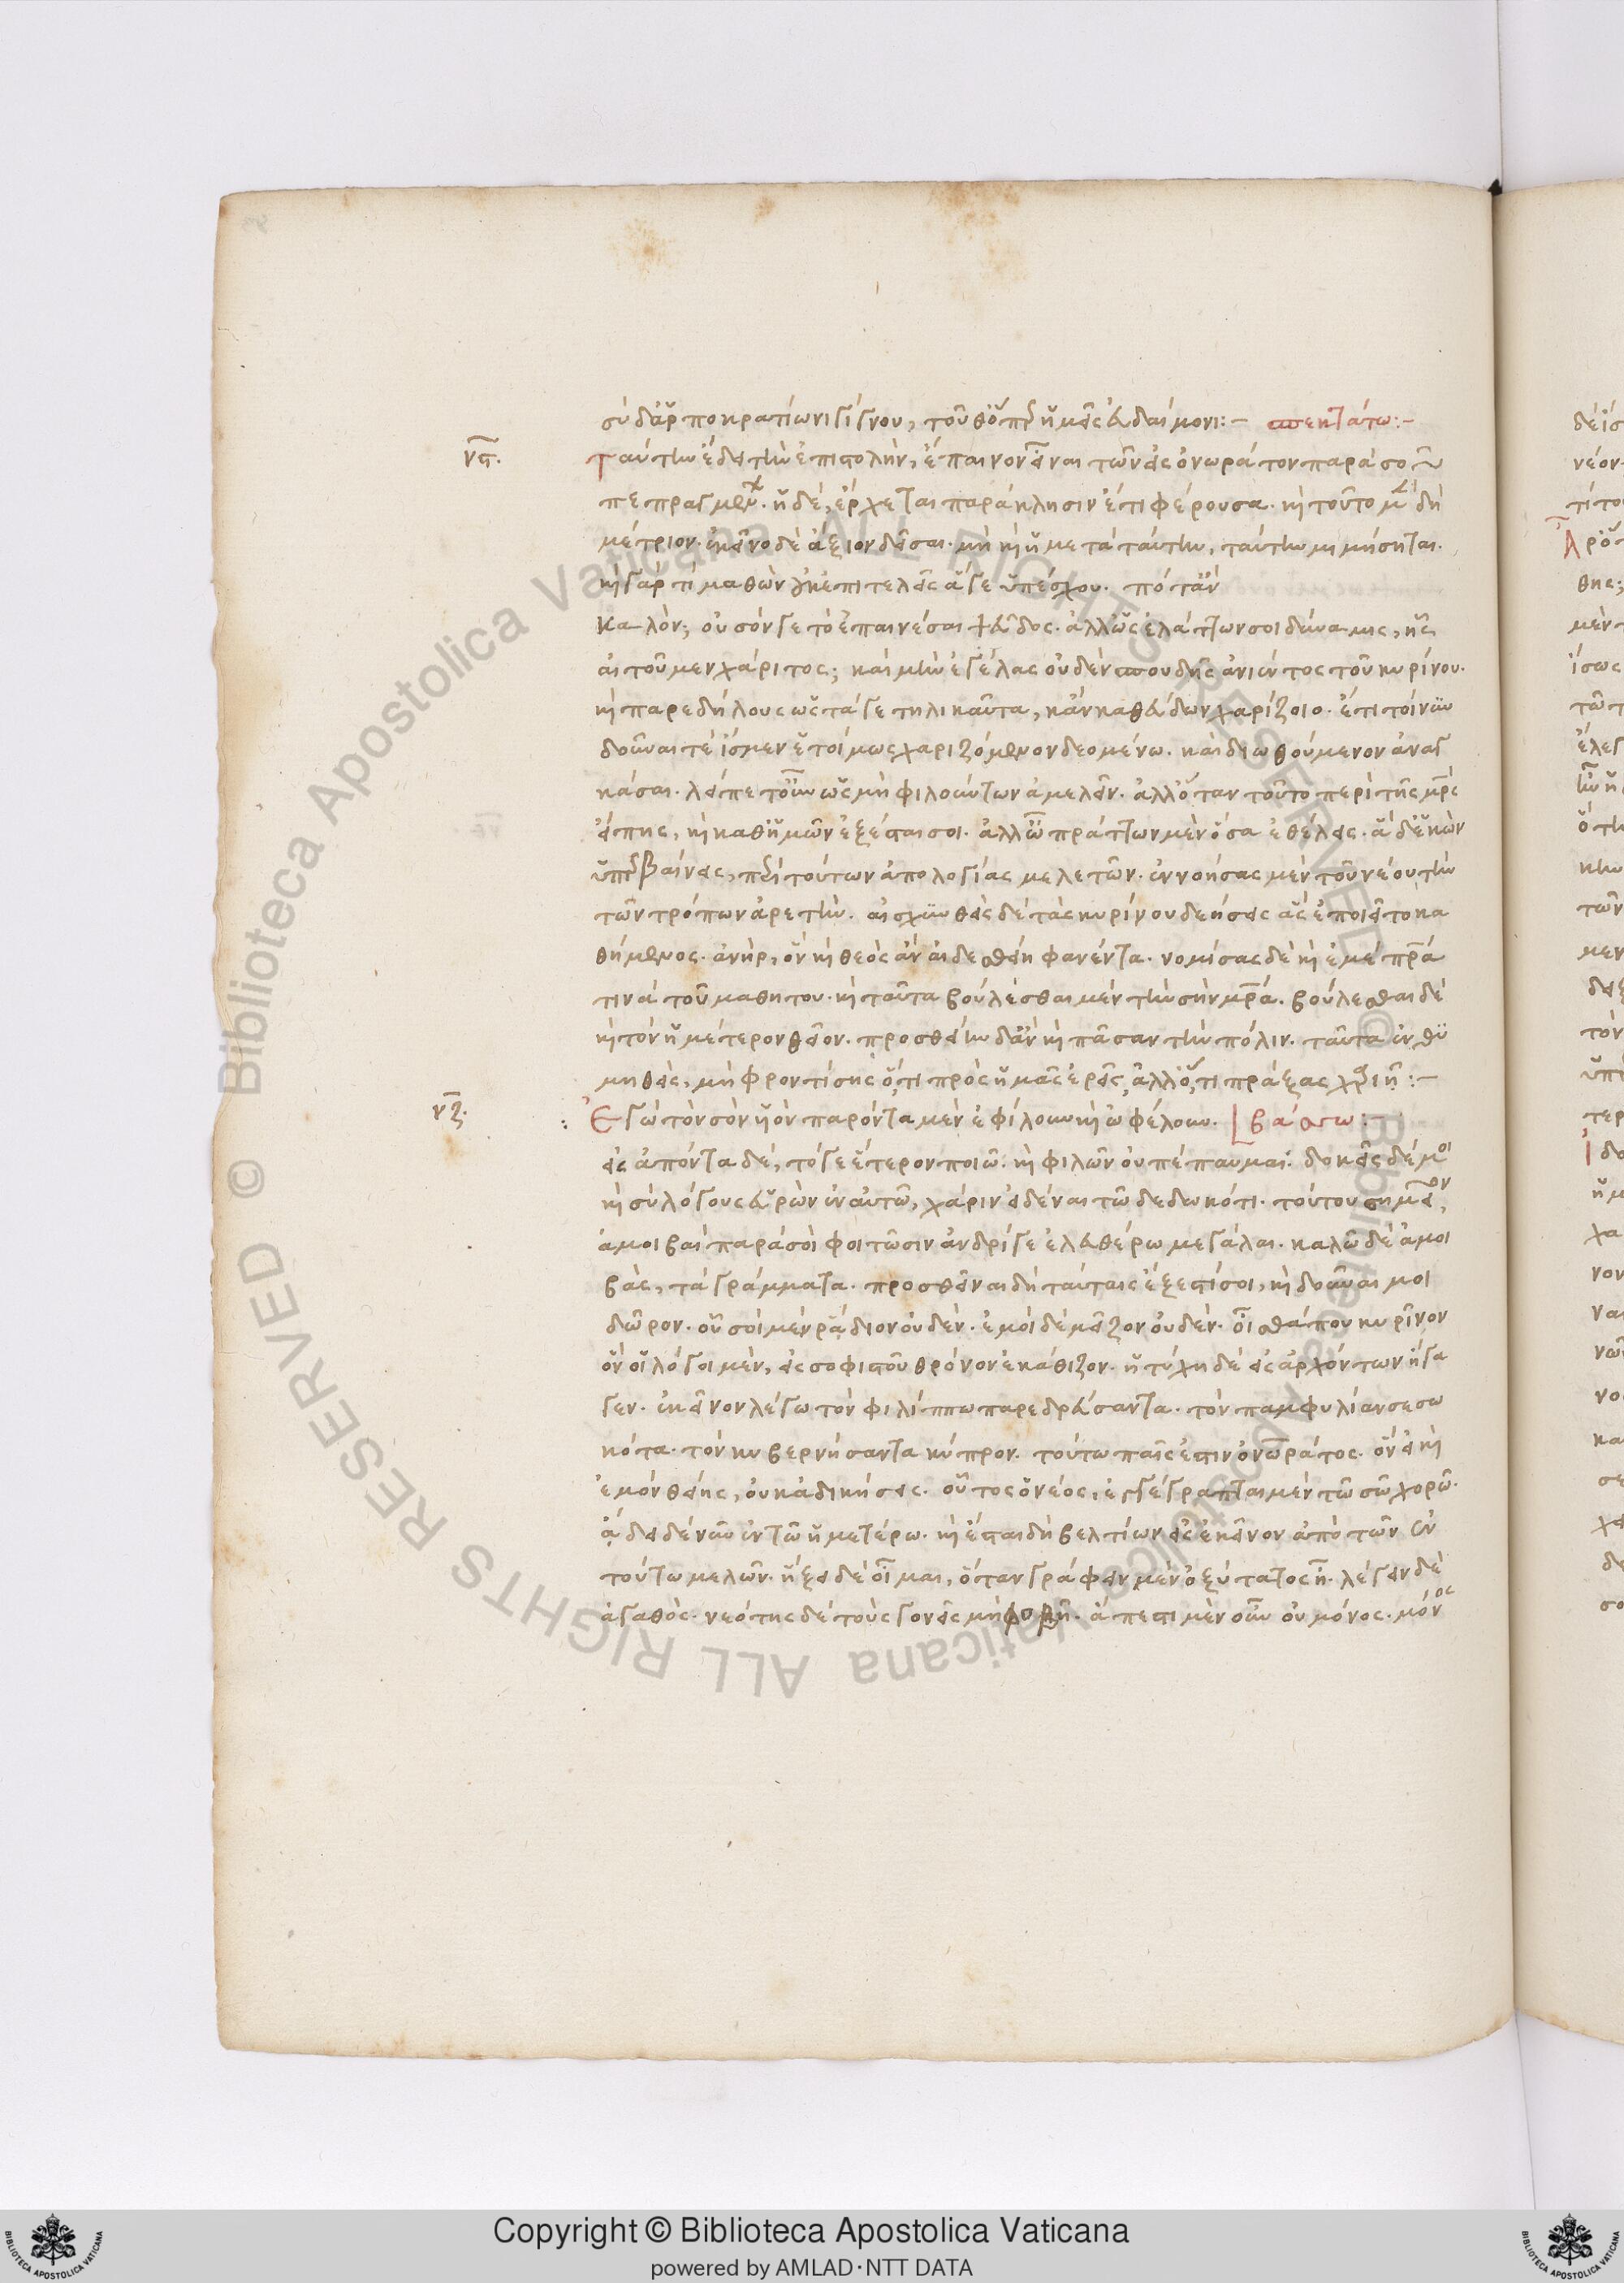 σὺ δ' ἁρποκρατίωνι γίγνου, τοῦθ' ὅπερ ἡμεῖς εὐδαίμονι:- σπεκτάτω:-
νϛ. Ταύτην ἔδει τὴν ἐπιστολὴν, ἔπαινον εἶναι τῶν εἰς ὀνωράτον παρὰ σοῦ
πεπραγμένων. ἡ δὲ, ἔρχεται παράκλησιν ἔτι φέρουσα. καὶ τοῦτο μὲν δὴ
μέτριον. ἐκεῖνο δὲ ἄξιον δεῖσαι. μὴ καὶ ἡ μετὰ ταύτην, ταύτην μιμήσηται.
καὶ γὰρ τί μαθὼν οὐκ ἐπιτελεῖς ἅ γε ὑπέσχου. πότερον
καλὸν; οὐ σόν γε τὸ ἐπαινέσαι ψεῦδος. ἀλλ' ὡς ἐλάττων σοι δύναμις, ἧς
αἰτοῦμεν χάριτος; καὶ μὴν ἐγέλας οὐδὲν σπουδῆς ἀνιέντος τοῦ κυρίνου.
καὶ παρεδήλους ὡς τά γε τηλικαῦτα, κἂν καθεύδων χαρίζοιο. ἔτι τοίνυν
δοῦναί τε ἴσμεν ἑτοίμως χαριζόμενον δεομένω. καὶ διωθούμενον ἀναγ
κάσαι. λείπεται τοίνυν ὡς μὴ φιλοῦντων ἀμελεῖν. ἀλλ' ὅταν τοῦτο περὶ τῆς μητρὸς
εἴπῃς, καὶ καθ' ἡμῶν ἔξεσταί σοι. ἀλλ' ὦ πράττων μὲν ὅσα ἐθέλεις. ἃ δ' ἑκὼν
ὑπερβαίνεις, περὶ τούτων ἀπολογίας μελετῶν. ἐννοήσας μὲν τοῦ νέου τὴν
τῶν τρόπων ἀρετὴν. αἰσχυνθεὶς δὲ τὰς κυρίνου δεήσεις ἃς ἐποιεῖτο κα
θήμενος. ἀνὴρ, ὃν καὶ θεὸς ἂν αἰδεσθείη φανέντα. νομίσας δὲ καὶ ἐμὲ πατέρα
τινὰ τοῦ μαθητου. καὶ ταῦτα βούλεσθαι μὲν τὴν σὴν μητέρα. βούλεσθαι δὲ
καὶ τὸν ἡμέτερον θεῖον. προσθείην δ' ἂν καὶ πᾶσαν τὴν πόλιν. ταῦτα ἐνθυ
μηθεὶς, μὴ φροντίσῃς ὅ,τι πρὸς ἡμᾶς ἐρεῖς, ἀλλ' ὅ,τι πράξας χαριῇ:-
νζ. Ἐγὼ τὸν σὸν υἱὸν παρόντα μὲν ἐφίλουν καὶ ὠφέλουν. βάσσω:-
εἰς ἀπόντα δὲ, τό γε ἕτερον ποιῶ. καὶ φιλῶν οὐ πέπαυμαι. δοκεῖς δέ μοι
καὶ σὺ λόγους εὑρὼν ἐν αὐτῶ, χάριν εἰδέναι τῶ δεδωκότι. τούτου σημεῖον,
ἀμοιβαὶ παρὰ σοὶ φοιτῶσιν ἀνδρί γε ἐλευθέρω μεγάλαι. καλῶ δὲ ἀμοι
βὰς, τὰ γράμματα. προσθεῖναι δὴ ταύταις ἔξεστί σοι, καὶ δοῦναί μοι
δῶρον. οὗ σοὶ μὲν ῥᾴδιον οὐδὲν. ἐμοὶ δὲ μεῖζον οὐδέν. οἶσθά που κυρῖνον
ὃν οἱ λόγοι μὲν, εἰς σοφιστοῦ θρόνον ἐκάθιζον. ἡ τύχη δὲ εἰς ἀρχόντων ἤγα
γεν. ἐκεῖνον λέγω τὸν φιλίππω παρεδρεύσαντα. τὸν παμφυλίαν σεσω
κότα. τὸν κυβερνήσαντα κύπρον. τούτω παῖς ἐστιν ὀνωράτος. ὃν εἰ καὶ
ἐμὸν θείης, οὐκ ἀδικήσεις. οὗτος ὁ νέος, ἐγγέγραπται μὲν τῶ σῶ χορῶ.
ᾄδει δὲ νῦν ἐν τῶ ἡμετέρω. καὶ ἔσται δὴ βελτίων εἰς ἐκεῖνον ἀπὸ τῶν ἐν
τούτω μελῶν. ἥξει δὲ οἶμαι, ὅταν γράφειν μὲν ὀξύτατος ᾖ. λέγειν δὲ
ἀγαθὸς. νεότης δὲ τοὺς γονεῖς μὴ φοβῇ. ἄπεστι μὲν οὖν οὐ μόνος. μόνος
Copyright © Biblioteca Apostolica Vaticana
powered by AMLAD·NTT DATA